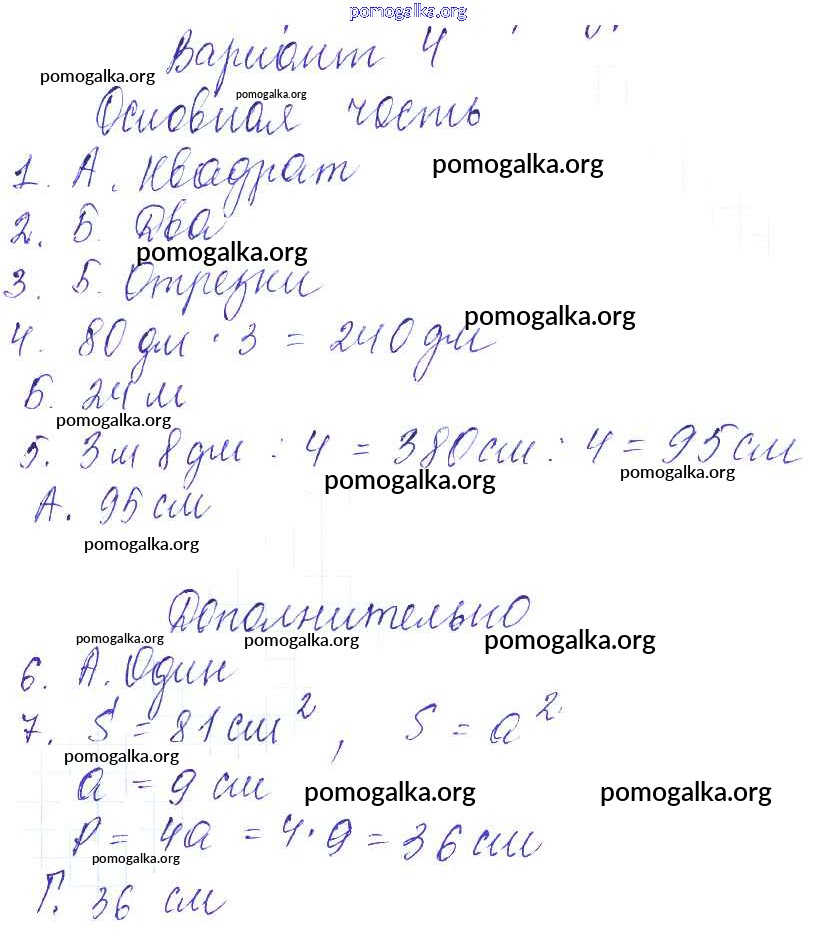 pomogalka.org
Вариант 4
pomogalka.org
pomogalka.org
Основная часть
1. А. Квадрат
pomogalka.org
2. Б. Два
pomogalka.org
3. Б. Отрезки
pomogalka.org
4. 80 дм · 3 = 240 дм
Б. 24 м
pomogalka.org
5. 3м 8дм : 4 = 380см : 4 = 95см
pomogalka.org
pomogalka.org
А. 95 см
pomogalka.org
Дополнительно
pomogalka.org
pomogalka.org
pomogalka.org
6. А. Один
7. S = 81см², S = a²
pomogalka.org
a = 9 см
pomogalka.org
pomogalka.org
P = 4a = 4·9 = 36 см
pomogalka.org
Г. 36 см